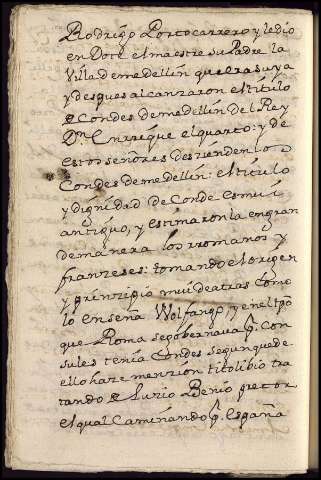 Rodrigo Portocarrero y le dio
en Dote el maestre su Padre la
Villa de medellin que era suya
y despues alcanzaron el titulo
de Condes de medellin del Rey
Dn. Enrrique el quarto: y de
estos señores desziendenlos
Condes de medellin: el titulo
y dignidad de Conde es mui
antiguo, y estimaron la en gran
de manera los rromanos y
franzeses: tomando el origen
y prinzipio mui de atras como
lo enseña Wolfango, y en el tpo
que Roma se gobernava pr. Con
sules tenia Condes segun que de
ello haze menzion titolibio tra
tando de Luzio Benio pretor
el qual Caminando pr. España